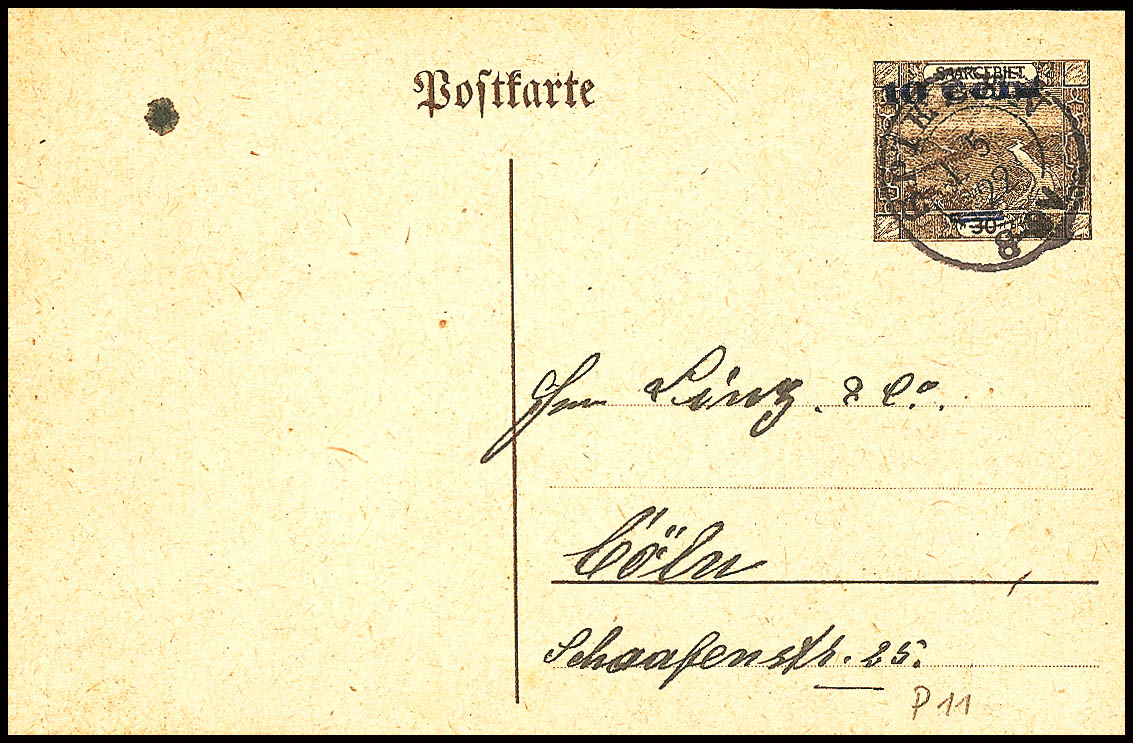 Postkarte
SAARGEBIET
10 Cent
1 5
22
8-9V
30
Linz. & Co.
Cöln
Schaafenstr. 25.
P 11